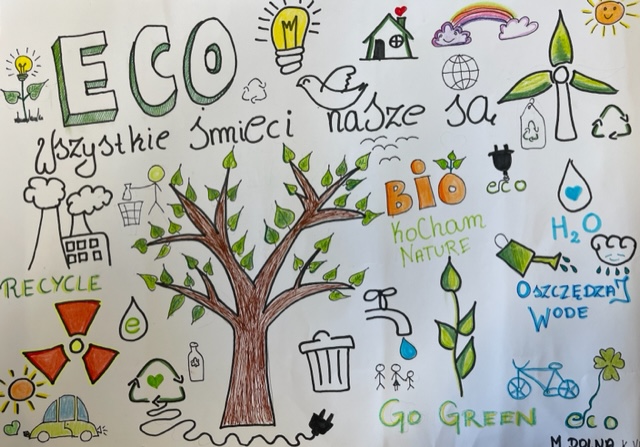 ECO
Wszystkie śmieci nasze są
BiO
eco
KoCham
NATURE
H₂O
RECYCLE
OSZCZĘDZAJ
WODE
e
GO GREEN
eco
M. DOLNA